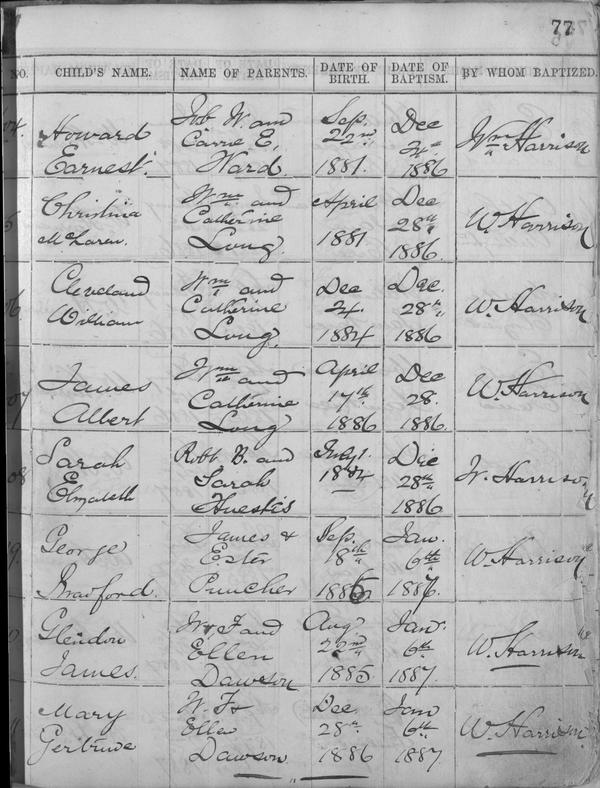 77
NO. CHILD'S NAME. NAME OF PARENTS. DATE OF BIRTH. DATE OF BAPTISM. BY WHOM BAPTIZED.
04. Howard Earnest. Job W. and Carrie E. Ward. Sep. 22nd 1881. Dec 24th 1886 Wm Harrison
5 Christina McLaren. Wm and Catherine Long. April 1881 Dec 28th 1886. W. Harrison
06. Cleveland William Wm and Catherine Long, Dec 24. 1884 Dec. 28th 1886 W. Harrison
07 James Albert Wm and Catherine Long April 17th 1886 Dec 28. 1886. W. Harrison
08. Sarah Elizabeth Robt B. and Sarah Huestis 1884 Dec 28th 1886 W. Harrison
9. George Bradford. James & Ester Puncher Sep. 18th 1886 Jan. 6th 1887. W. Harrison
Glendon James. W. F and Ellen Dawson Aug 22nd 1885 Jan. 6th 1887. W. Harrison
Mary Gertrude W. F & Ellen Dawson Dec 28th 1886 Jan 6th 1887 W. Harrison